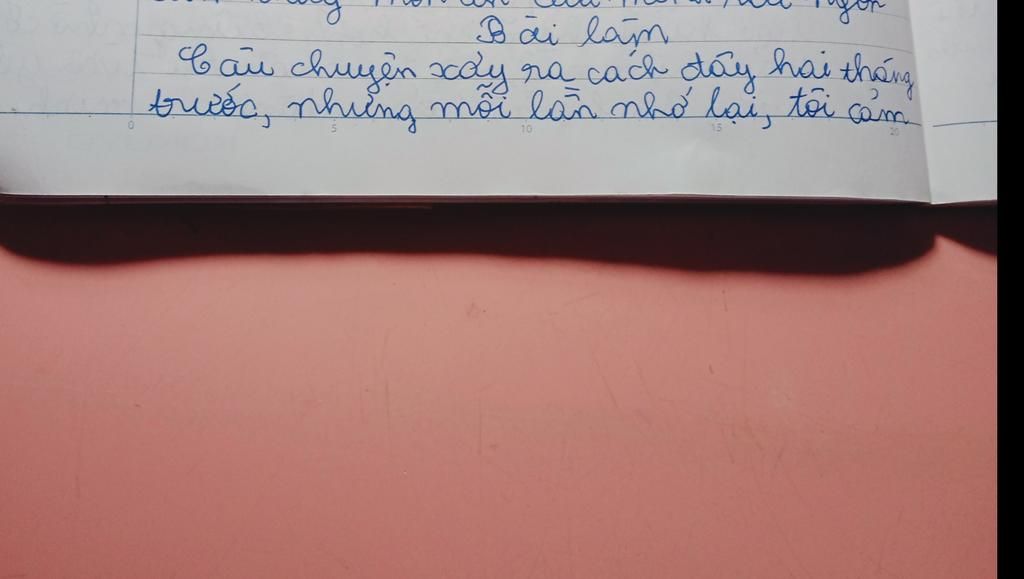 Bài làm
Câu chuyện xảy ra cách đây hai tháng
trước, nhưng mỗi lần nhớ lại, tôi cảm
0 5 10 15 20